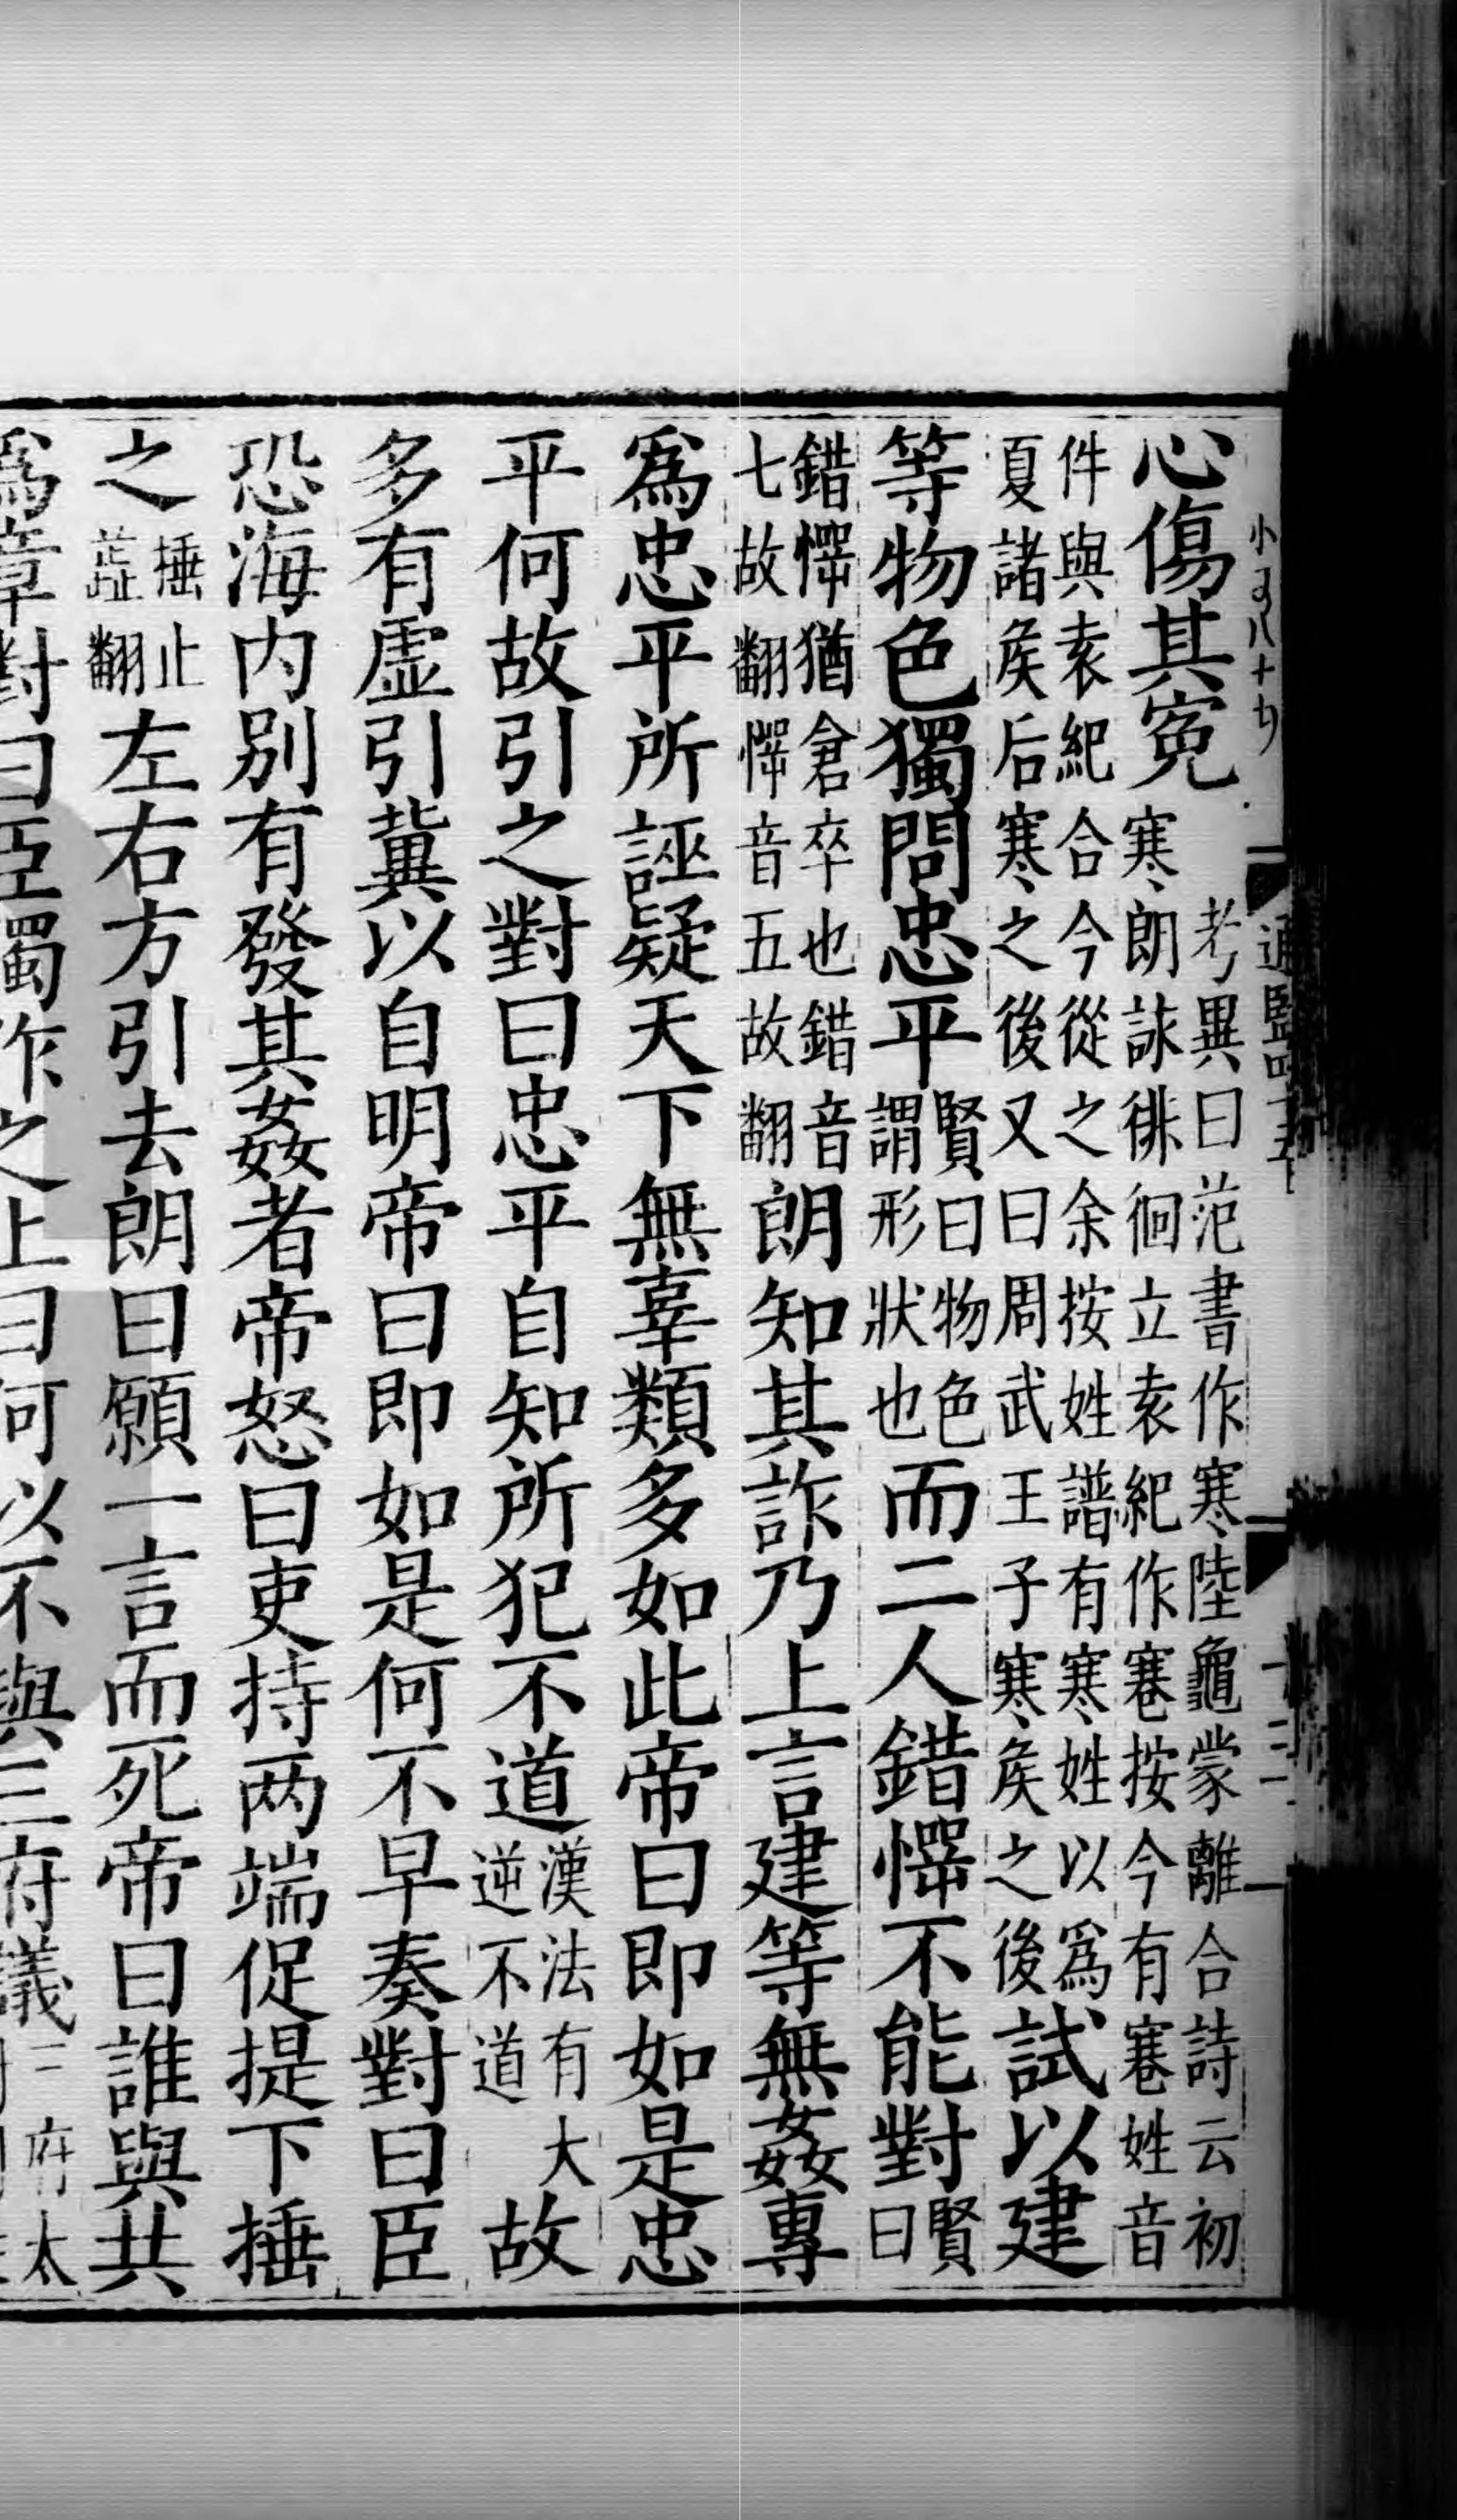 心傷其寃考異曰范書作寒陸龜蒙離合詩云初寒朗詠徘徊立袁紀作蹇按今有蹇姓音
件與袁紀合今從之余按姓譜有寒姓以爲夏諸矦后寒之後又曰周武王子寒矦之後試以建
等物色獨問忠平賢曰物色謂形狀也而二人錯愕不能對賢曰
錯愕猶倉卒也錯音七故翻愕音五故翻朗知其詐乃上言建等無姦專
爲忠平所誣疑天下無辜類多如此帝曰即如是忠
平何故引之對曰忠平自知所犯不道漢法有大逆不道故
多有虛引兾以自明帝曰即如是何不早奏對曰臣
恐海内別有發其姦者帝怒曰吏持两端促提下捶
之捶止蘂翻左右方引去朗曰願一言而死帝曰誰與共
爲章對曰臣獨作之上曰何以不與三府議三府太